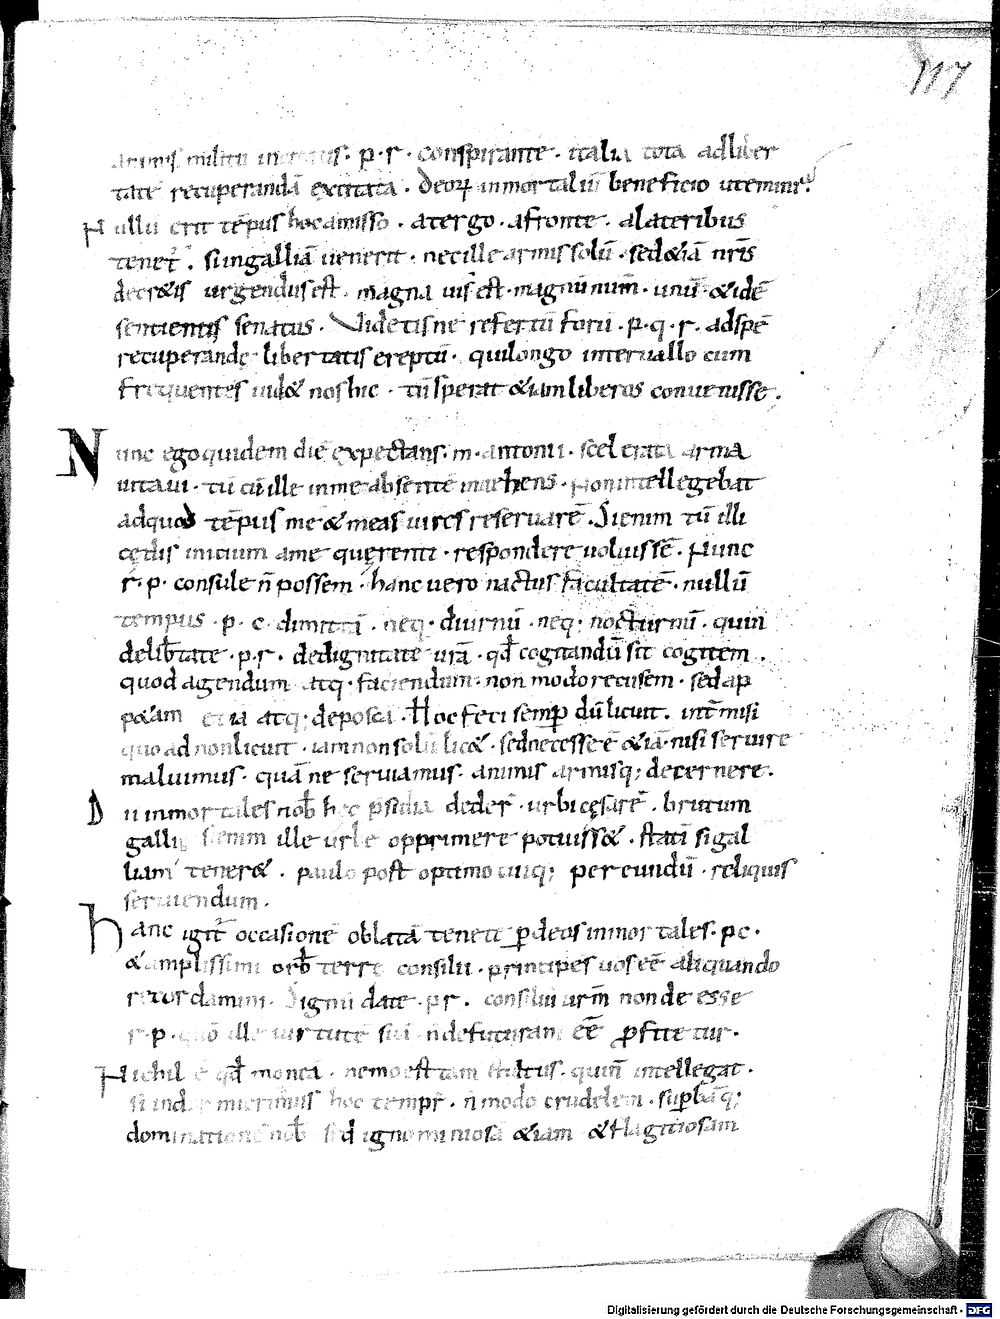 117
animis militū incitatis · p · r · conspirante · italia tota adliber
tatē recuperandā excitata · deoꝝ inmortaliū beneficio utemini.
Nullū erit tēpus hoc amisso · atergo · afronte · alateribus
tenet᷑ . siingalliā uenerit · necille armis solū · sed&iā nr̄is
decr&is urgendus est . magna uis est · magnū num̄ · unū · &idē
sentientis senatus . Videtisne refertū forū · p · q · r · adspē
recuperandę libertatis ereptū · quilongo interuallo cum
frequentes uid& nos hic · tū sperat &iam liberos conuenisse .
Nunc ego quidem diē expectans · m · antonii · scelerata arma
uitaui · tū cū ille inme absentē inuehens · Nonintellegebat
adquod tēpus me & meas uires reseruarē . Sienim tū illi
cędis initium ame querenti · respondere uoluissē . Nunc
r̄ · p · consule n̄ possem · hanc uero nactus facultatē · nullū
tempus · p · c · dimittā · neq · diurnū · neq; nocturnū · quin
delib̄tate · p · r · dedignitate urā · qđ cogitandū sit cogitem .
quod agendum atq · faciendum · non modo recusem · sed ap
p&am etiā atq; deposcā . Hoc feci semꝑ dū licuit . int̄misi
quoad nonlicuit · iamnonsolū lic& · sednecesse ē &iā · nisi seruire
maluimus · quā ne seruiamus · animis armisq; decernere .
Dii inmortales nob̄ hęc p̄sidia deder̄ · urbi cęsarē . brutum
gallię sienim ille urbē opprimere potuiss& · statī si gal
liam tener& . paulo post optimo cuiq; pereundū · reliquis
seruiendum .
Hanc igit᷑ occasionē oblatā tenete ꝑ deos inmortales · pc ·
& amplissimi orb̄ terrę consilii · principes uos eē aliquando
recordamini . Signū date · pr . consiliū ur̄m non de esse
r · p · quō ille uirtutē suā n̄ defuturam eē ꝓfitetur .
Nichil ē qđ moneā . nemo est tam stultus · quin̄ intellegat .
si indormierimus hoc tempr̄ . n̄ modo crudelem · suꝑbāq;
dominationē nob̄ · sed ignominiosā &iam &flagitiosam
Digitalisierung gefördert durch die Deutsche Forschungsgemeinschaft - DFG